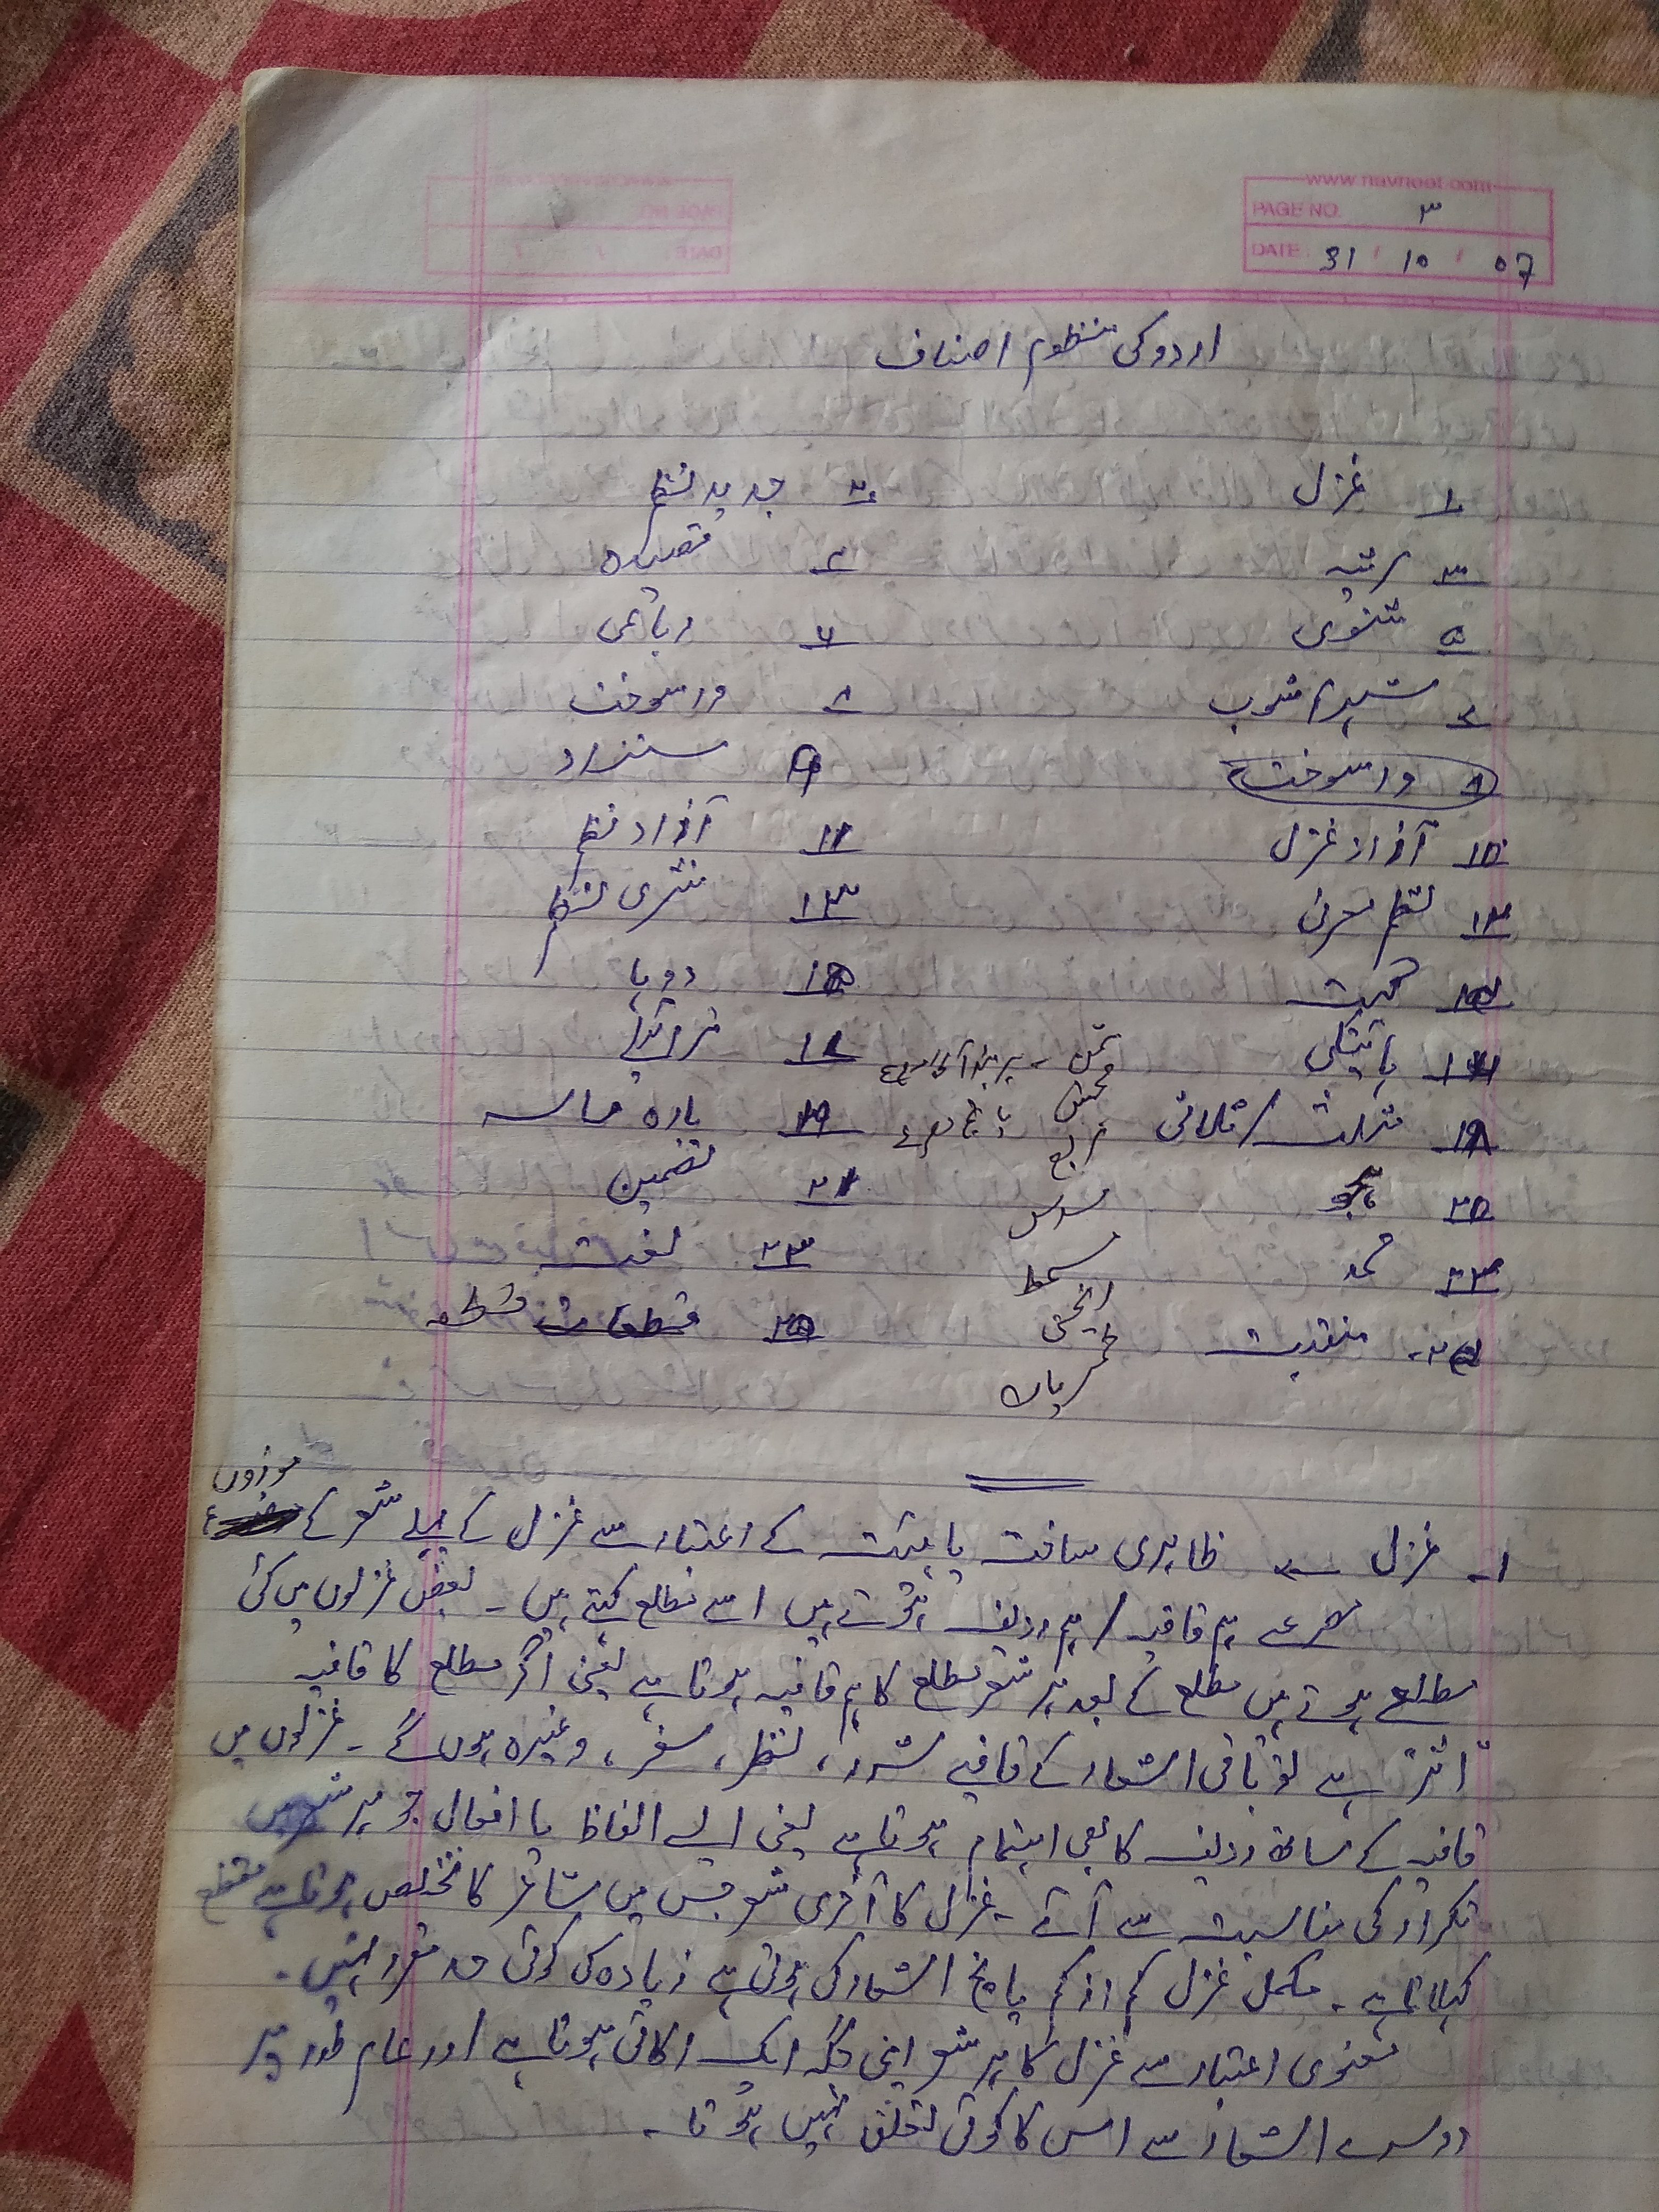 www.navneet.com
PAGE NO. ۳
DATE : 31 / 10 / 07
اردو کی منظوم اصناف
۱ غزل ۲ جدید نظم
۳ مرثیہ ۴ قصیدہ
۵ مثنوی ۶ رباعی
۷ شہر آشوب ۸ واسوخت
۸ واسوخت ۹ مستزاد
۱۰ آزاد غزل ۱۱ آزاد نظم
۱۲ نظم معریٰ ۱۳ نثری نظم
گیت دوہا
۱۶ ہائیکو ۱۷ ترائیلے
مثمن
مخمس پانچ مصرعے
۱۸ مثلث / ثلاثی ۱۹ بارہ ماسہ
مربع
۲۰ ہجو ۲۱ تضمین
مسدس
۲۲ حمد ۲۳ نعت
مسمط
منقبت ۲۵ قطعات قطعہ
ریختی
خمریات
موزوں
۱۔ غزل ظاہری ساخت یا ہیئت کے اعتبار سے غزل کے پہلے شعر کے
مصرعے ہم قافیہ / ہم ردیف ہوتے ہیں اسے مطلع کہتے ہیں ۔ بعض غزلوں میں کئی
مطلع ہوتے ہیں مطلع کے بعد ہر شعر مطلع کا ہم قافیہ ہوتا ہے یعنی اگر مطلع کا قافیہ
"اثر" ہے تو باقی اشعار کے قافیے شرر ، نظر ، سفر ، وغیرہ ہوں گے ۔ غزلوں میں
قافیہ کے ساتھ ردیف کا بھی اہتمام ہوتا ہے یعنی ایسے الفاظ یا افعال جو ہر شعر میں
تکرار کی مناسبت سے آئے ۔ غزل کا آخری شعر جس میں شاعر کا تخلص ہوتا ہے مقطع
کہلاتا ہے ۔ مکمل غزل کم از کم پانچ اشعار کی ہوتی ہے زیادہ کی کوئی حد مقرر نہیں ۔
معنوی اعتبار سے غزل کا ہر شعر اپنی جگہ ایک اکائی ہوتا ہے / اور عام طور پر
دوسرے اشعار سے اس کا کوئی تعلق نہیں ہوتا ۔